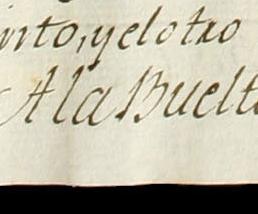 into, y el otro
A la Buelta